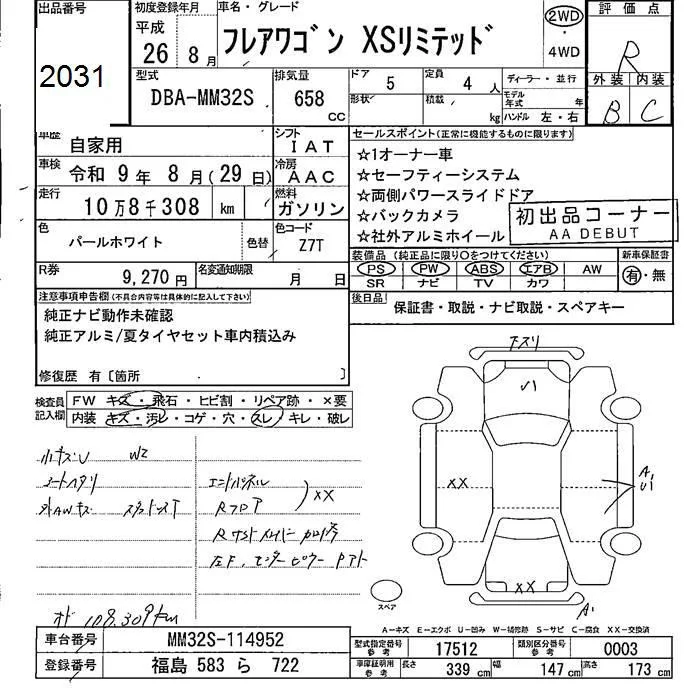 出品番号
2031
初度登録年月
平成
26年 8月
車名・グレード
フレアワゴン XSリミテッド
2WD
・
4WD
評価点
R
外装 内装
B C
型式
DBA-MM32S
排気量
658 CC
ドア 5
定員 4 人
形状
積載 kg
ディーラー・並行
モデル年式 年
ハンドル 左・右
車歴
自家用
シフト
IAT
車検
令和 9年 8月(29日)
冷房
AAC
走行
10万8千308 km
燃料
ガソリン
色
パールホワイト
色替
色コード
Z7T
R券
9,270円
名変通知期限
月 日
セールスポイント(正常に機能するものに限ります)
☆1オーナー車
☆セーフティーシステム
☆両側パワースライドドア
☆バックカメラ
☆社外アルミホイール
初出品コーナー
AA DEBUT
装備品(純正品に限り○をつけてください)
PS PW ABS エアB AW
SR ナビ TV カワ
新車保証書
有・無
後日品
保証書・取説・ナビ取説・スペアキー
注意事項申告欄(不具合内容等は具体的に記入して下さい)
純正ナビ動作未確認
純正アルミ/夏タイヤセット車内積込み
修復歴 有〔箇所 〕
検査員記入欄
FW キズ・飛石・ヒビ割・リペア跡・×要
内装 キズ・汚レ・コゲ・穴・スレ・キレ・破レ
小キズU W2
コートハクリ
外AWキズ スタットレスT
エンドパネル
Rフロア
XX
オド 108.309km
下スリ
U1
XX
A1
U1
XX
A1
スペア
A-キズ E-エクボ U-凹み W-補修跡 S-サビ C-腐食 XX-交換済
車台番号
MM32S-114952
登録番号
福島 583 ら 722
型式指定番号 参考
17512
類別区分番号 参考
0003
車庫証明用 参考
長さ 339 cm
幅 147 cm
高さ 173 cm